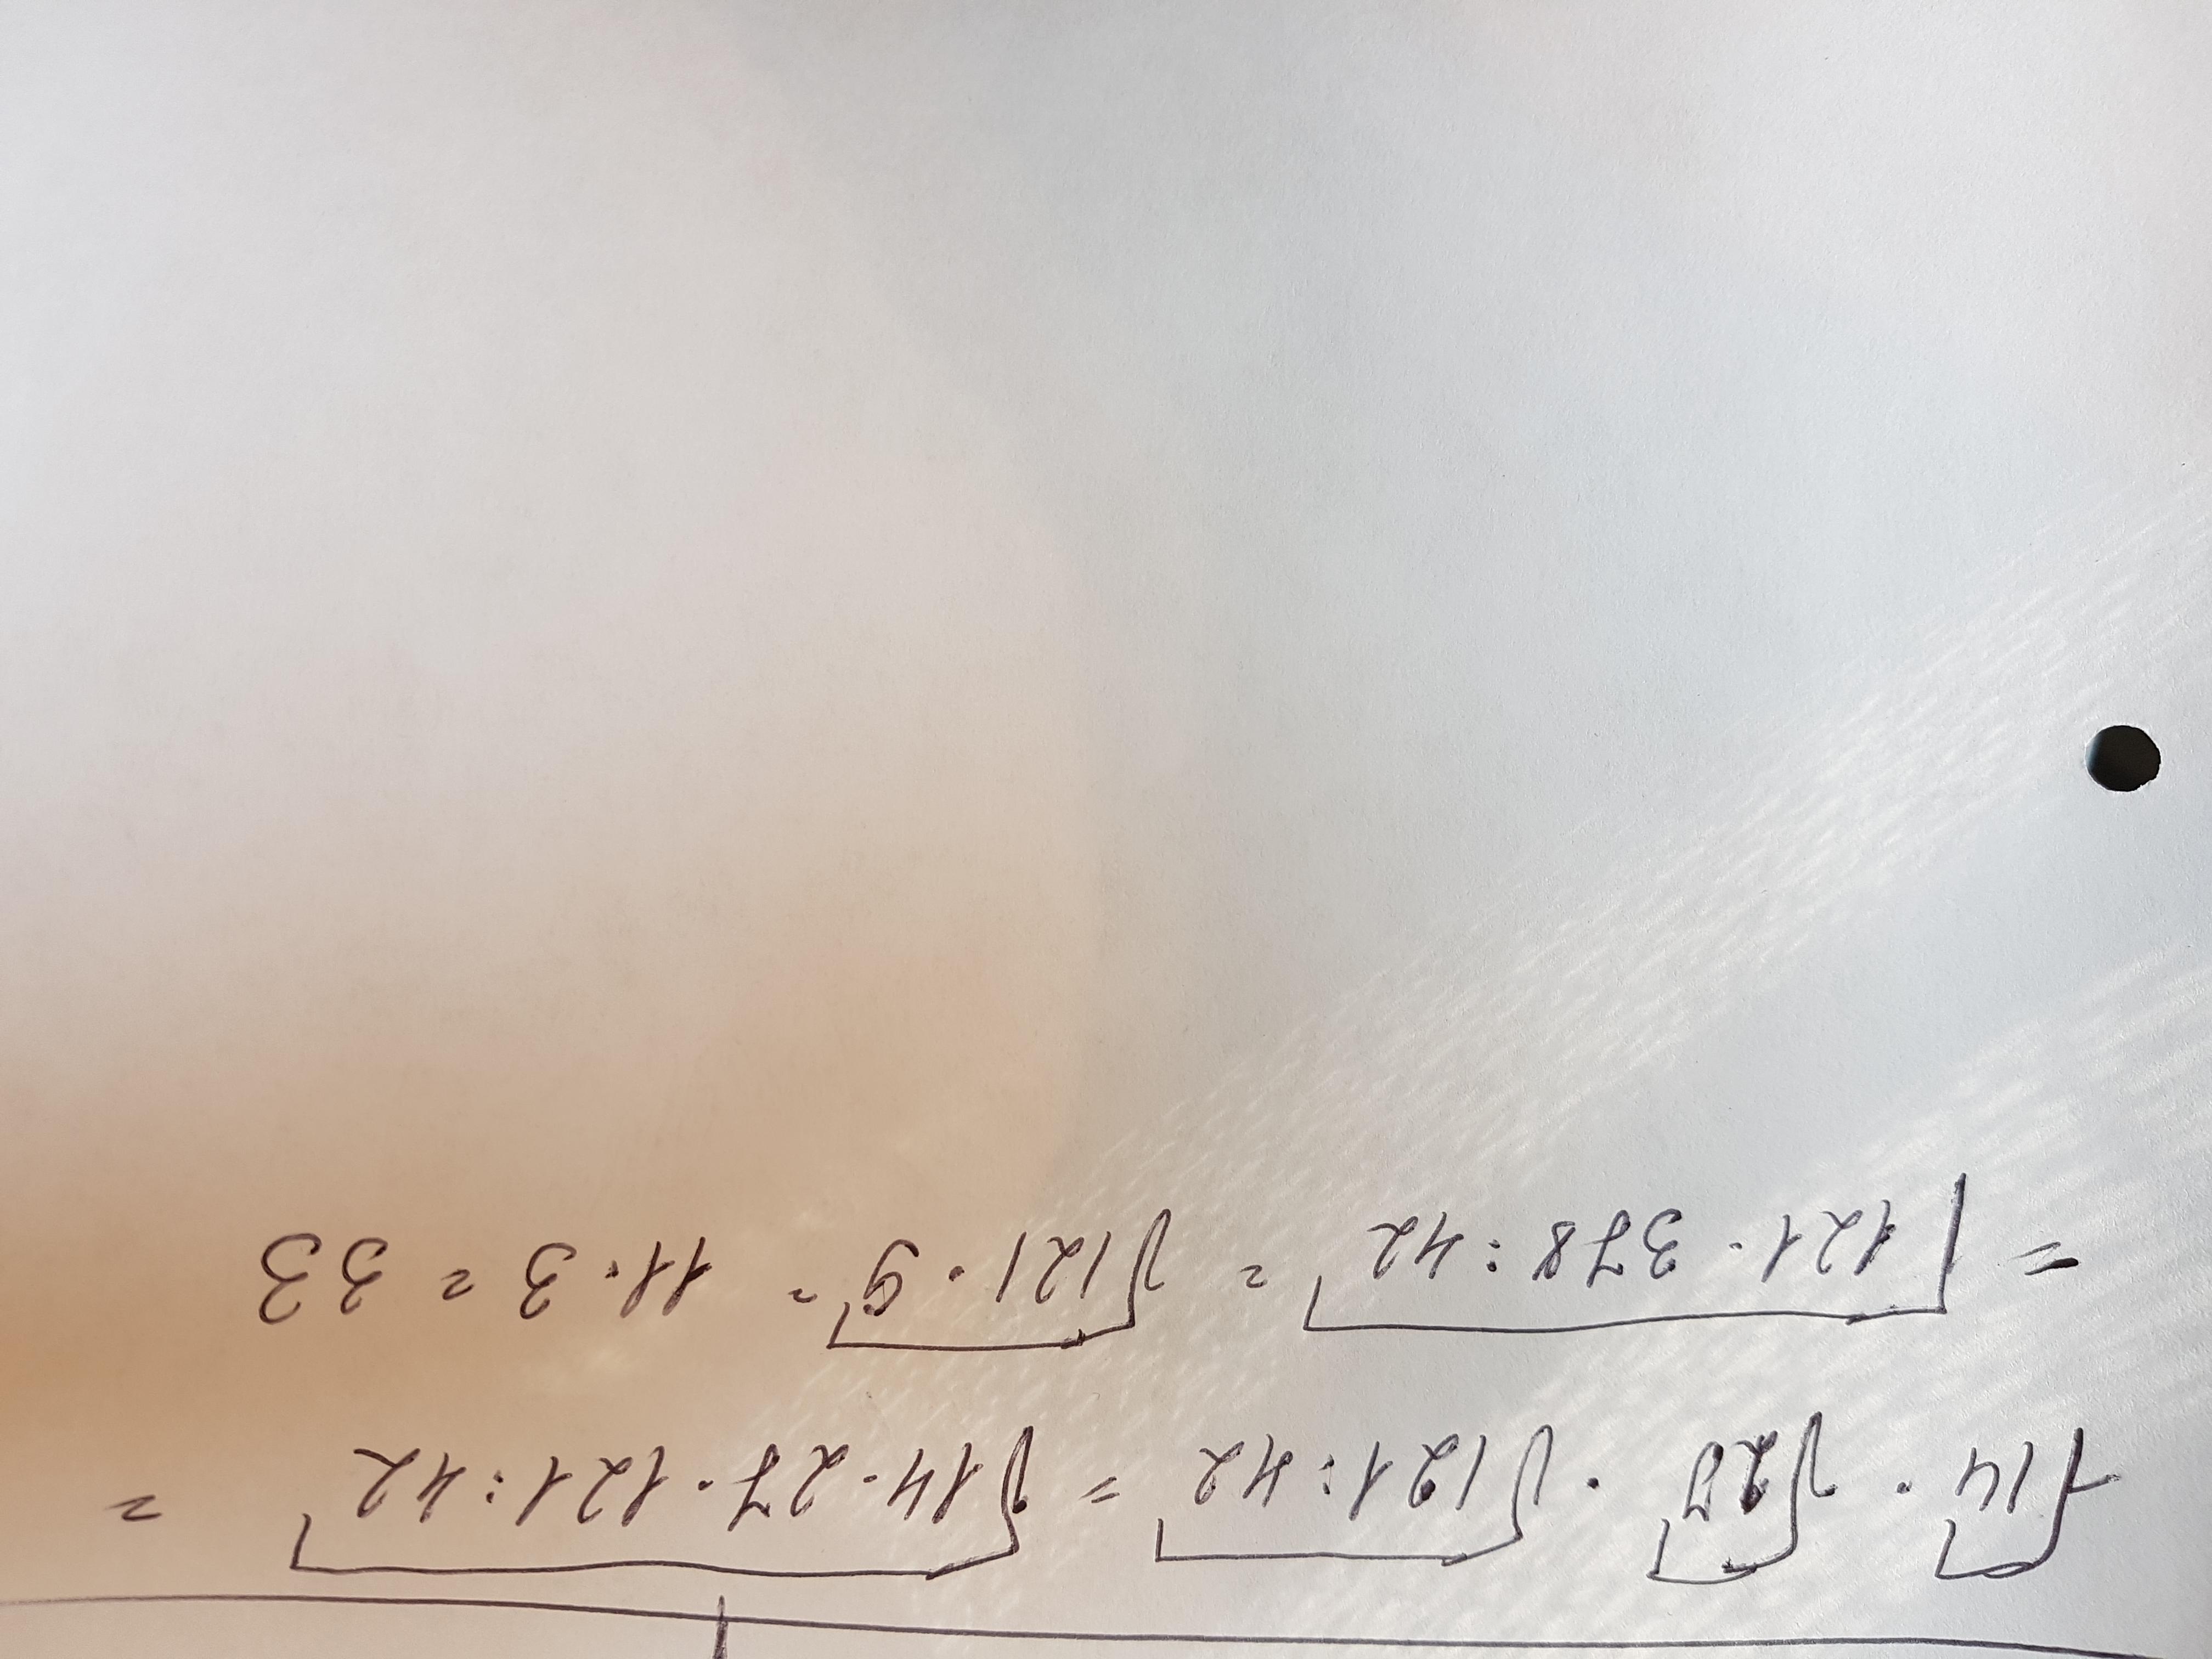 √14 · √27 · √121:42 = √14·27·121:42 =
= √121·378:42 = √121·9 = 11·3 = 33